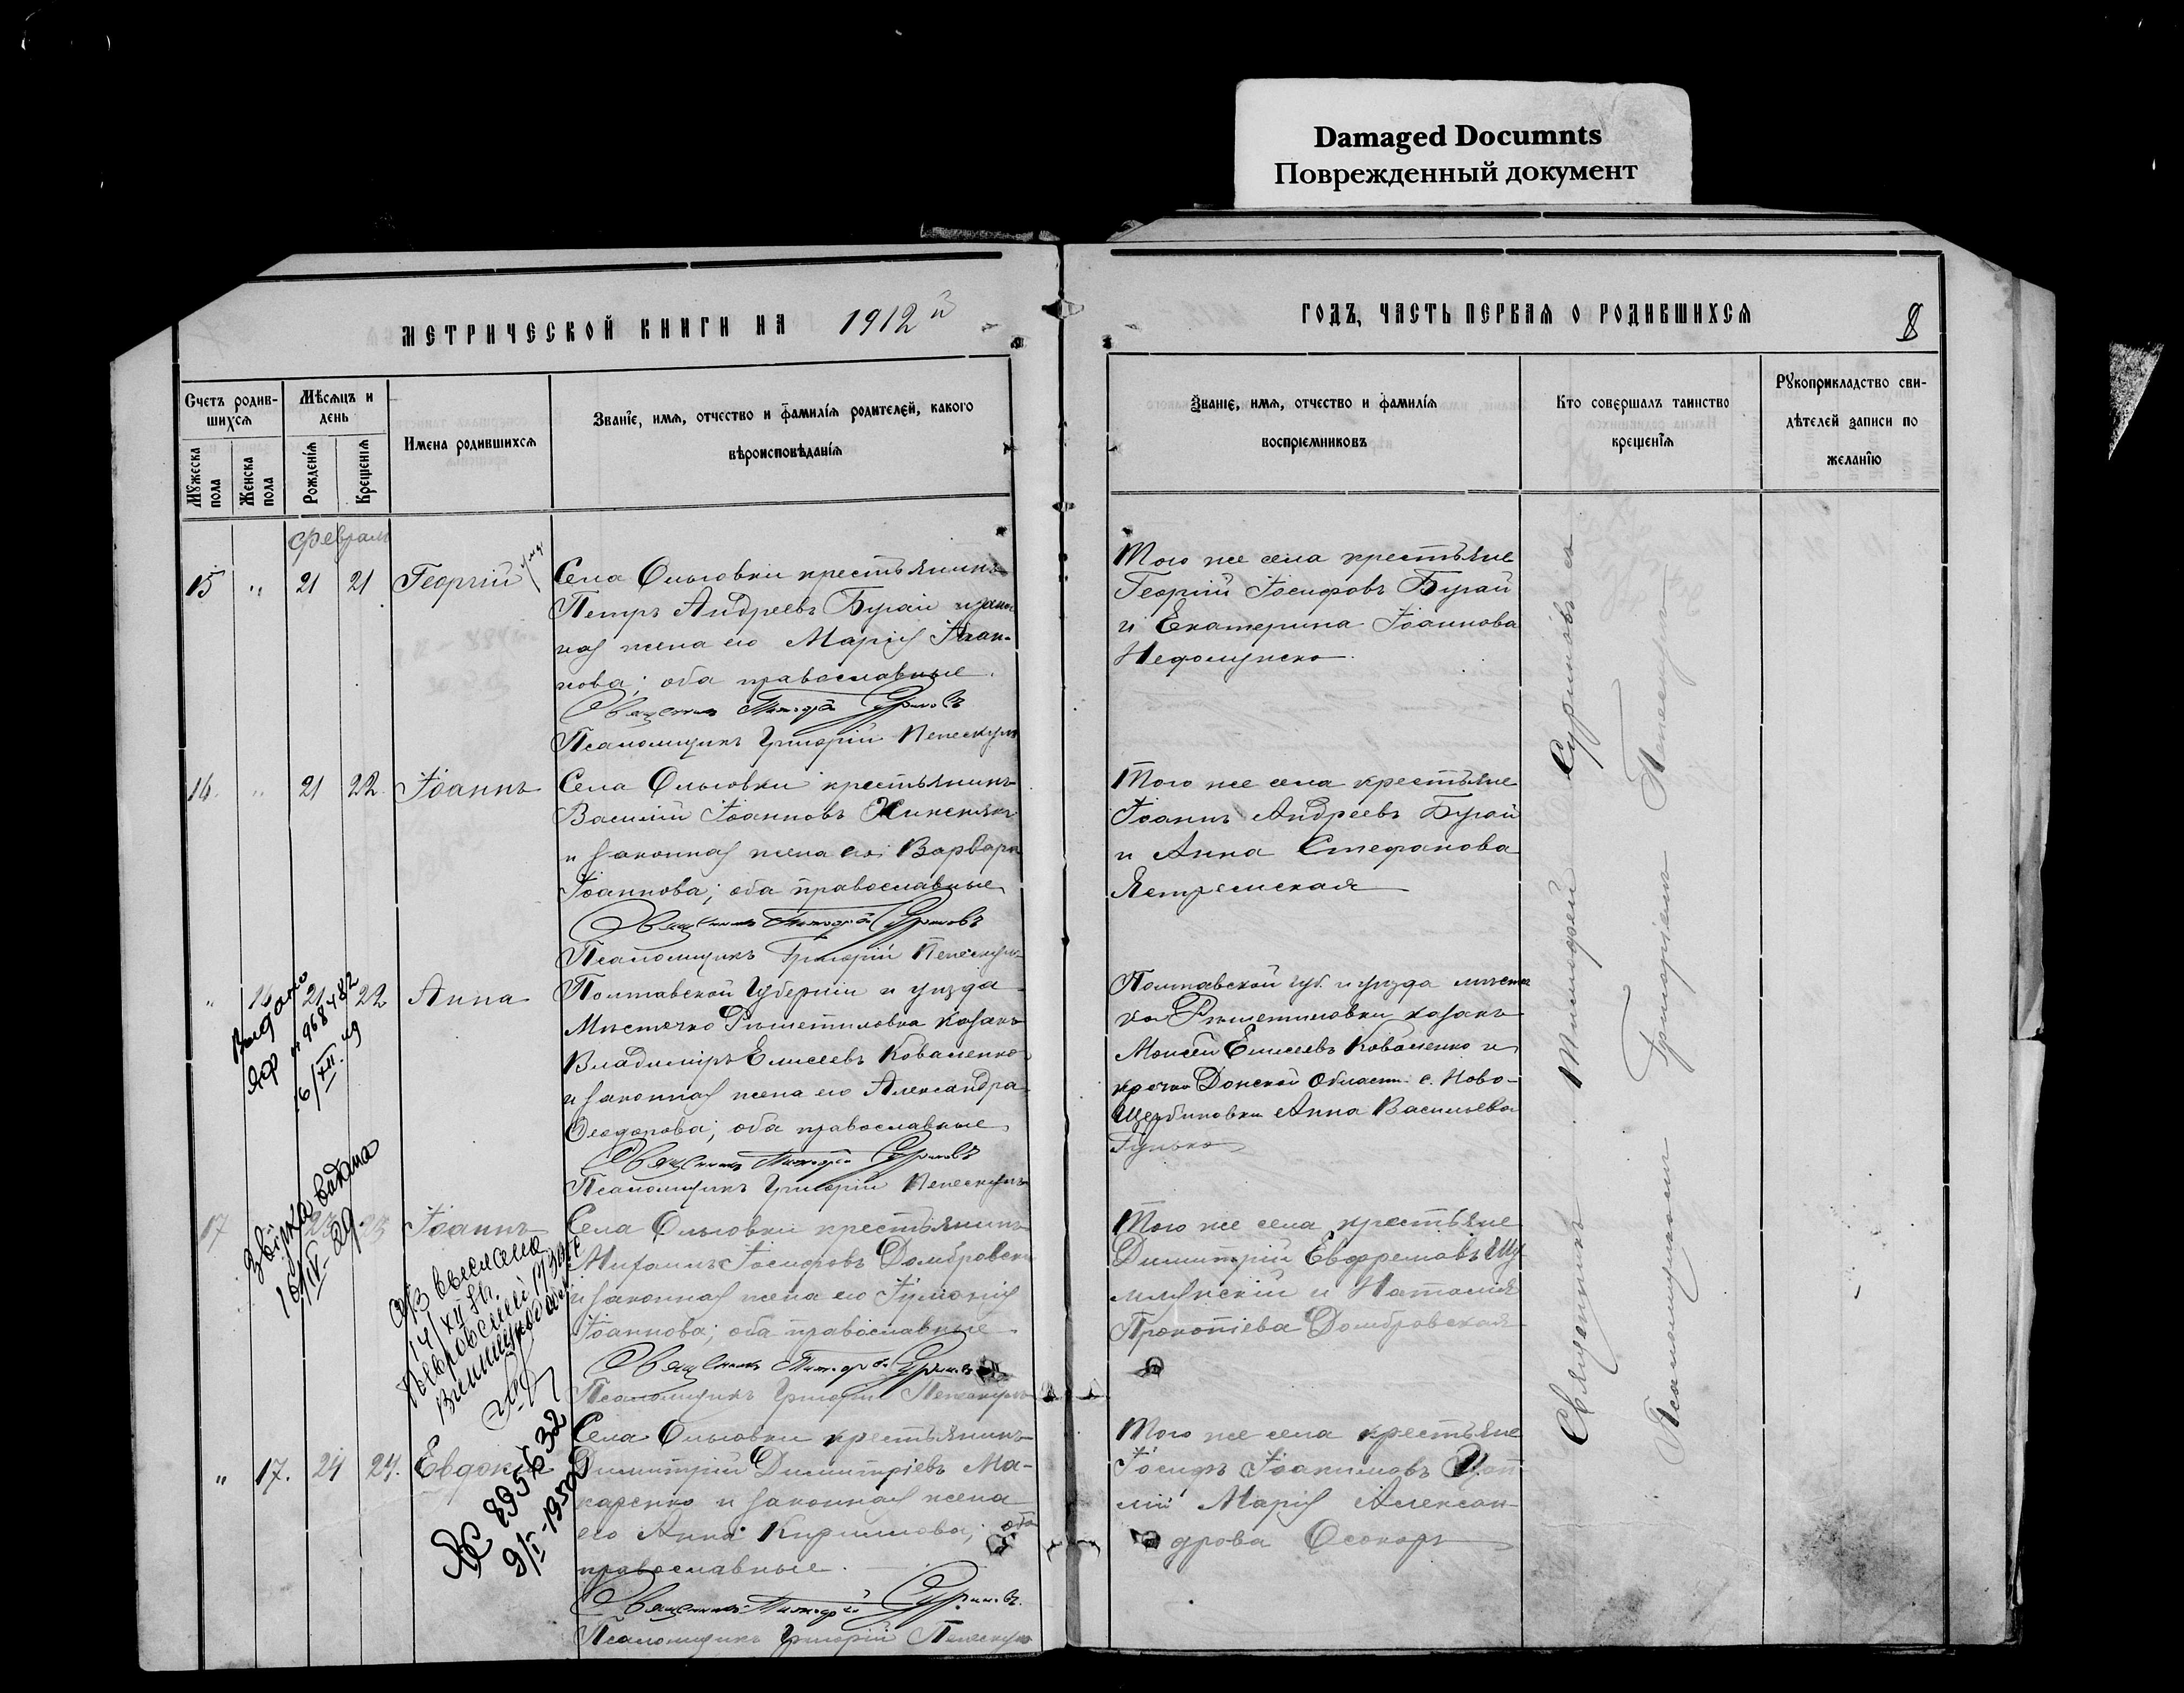 Damaged Documnts
Поврежденный документ
МЕТРИЧЕСКОЙ КНИГИ НА 1912 й
ГОДЪ, ЧАСТЬ ПЕРВАЯ О РОДИВШИХСЯ
8
Счетъ родив-
шихся
Мужеска
пола
Женска
пола
Мѣсяцъ и
день
Рожденія
Крещенія
Имена родившихся
Званіе, имя, отчество и фамилія родителей, какого
вѣроисповѣданія
Званіе, имя, отчество и фамилія
воспріемниковъ
Кто совершалъ таинство
крещенія
Рукоприкладство сви-
дѣтелей записи по
желанію
Февраль
15 " 21 21 Георгій
Села Ольговки крестьянинъ
Петръ Андреевъ Бугай и закон
ная жена его Марія Іоан-
нова; оба православные.
Священникъ Тимофей Суриновъ
Псаломщикъ Григорій
Того же села крестьяне
Георгій Іосифовъ Бугай
и Екатерина Іоаннова
16. " 21 22 Іоаннъ
Села Ольговки крестьянинъ
Василій Іоанновъ
и законная жена его Варвара
Іоаннова; оба православные
Священникъ Тимофей Суриновъ
Псаломщикъ Григорій
Того же села крестьяне
Іоаннъ Андреевъ Бугай
и Анна Стефанова
Ястремская
" 16 21 22 Анна
Полтавской Губерніи и уезда
Местечко Решетиловка казакъ
Владиміръ Елисеевъ Коваленко
и законная жена его Александра
Феодорова; оба православные
Священникъ Тимофей Суриновъ
Псаломщикъ Григорій
Полтавской губ. и уезда местеч
ка Решетиловки казакъ
Моисей Елисеевъ Коваленко и
Донской Области с. Ново-
Щербиновки Анна Васильева
Гунько
Выдано
№ 968482
16/XII.49
17 23 23 Іоаннъ
Села Ольговки крестьянинъ
Михаилъ Іосифовъ Домбровскій
и законная жена его Іуліанія
Іоаннова; оба православные
Священникъ Тимофей Суриновъ
Псаломщикъ Григорій
Того же села крестьяне
Димитрій Евфремовъ
и Наталія
Прокопіева Домбровская
видана
16/IV-29
выслана
14/XII
" 17. 24 24. Евдокія
Села Ольговки крестьянинъ
Димитрій Димитріевъ Ма-
каренко и законная жена
его Анна Кириллова; оба
православные.
Священникъ Тимофей Суриновъ.
Псаломщикъ Григорій
Того же села крестьяне
Іосифъ Іоакимовъ
Марія Алексан-
дрова Осокоръ
895632
9/I-1950
Священникъ Тимофей Суриновъ съ
Псаломщикомъ Григоріемъ